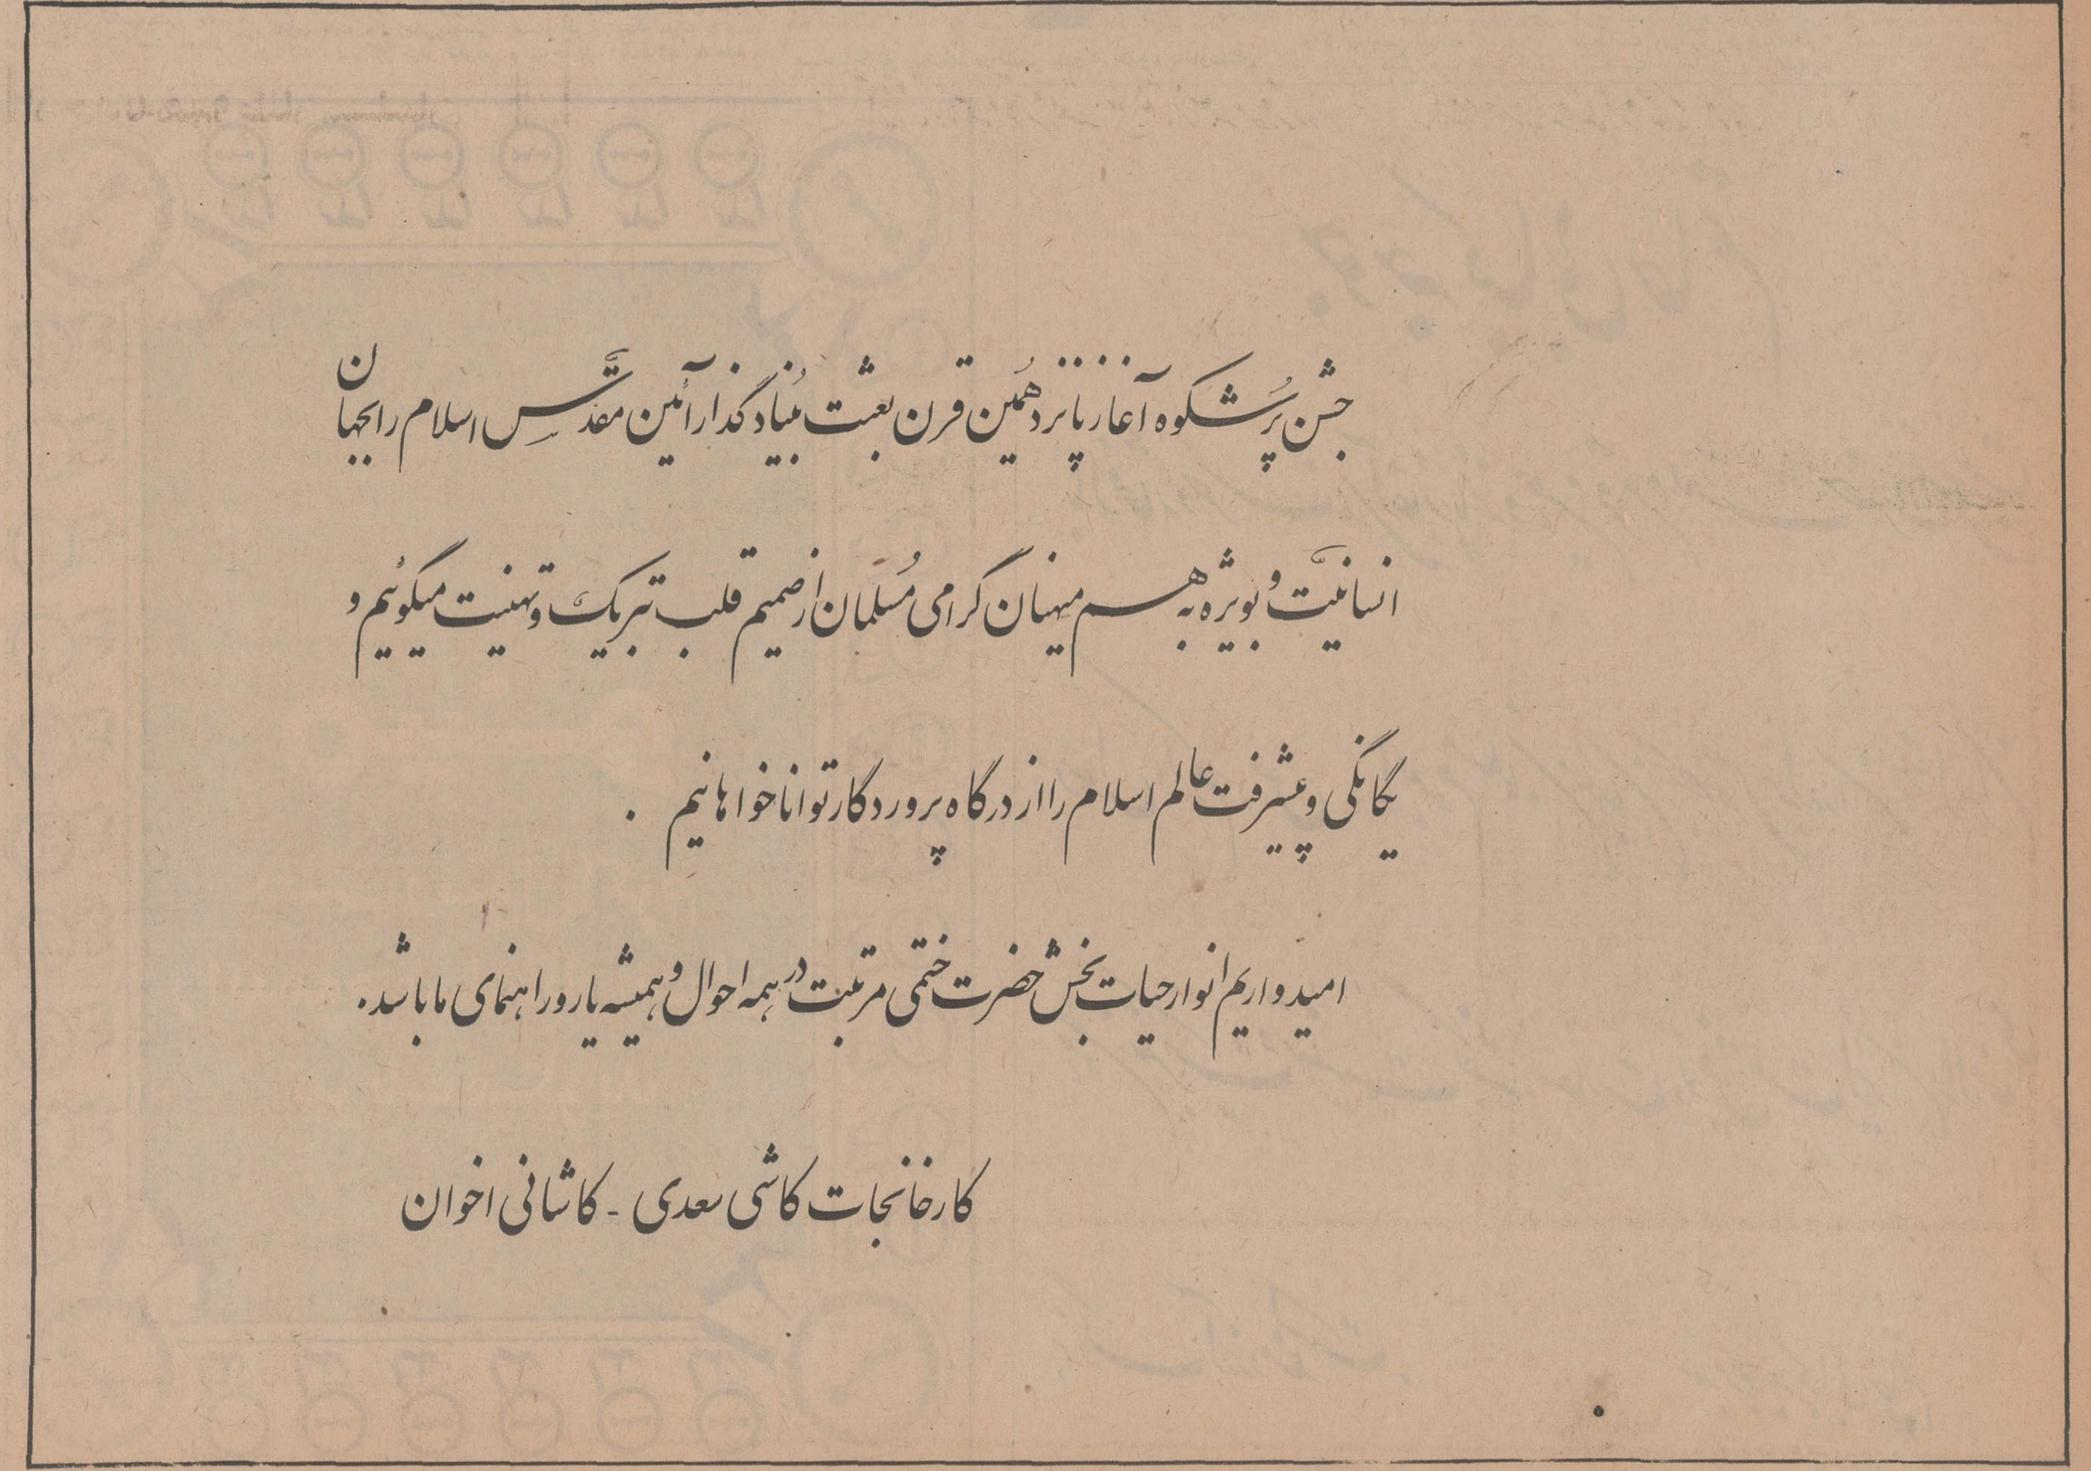 جشن پُرشکوه آغاز پانزدهمین قرن بعثت بُنیادگذار آئین مقدّس اسلام را بجهان
انسانیّت و بویژه به هم میهنان گرامی مُسلمان از صمیم قلب تبریک و تهنیت میگوئیم و
یگانگی و پیشرفت عالم اسلام را از درگاه پروردگار توانا خواهانیم .
امیدواریم انوار حیات بخش حضرت ختمی مرتبت در همه احوال و همیشه یار و راهنمای ما باشد.
کارخانجات کاشی سعدی - کاشانی اخوان